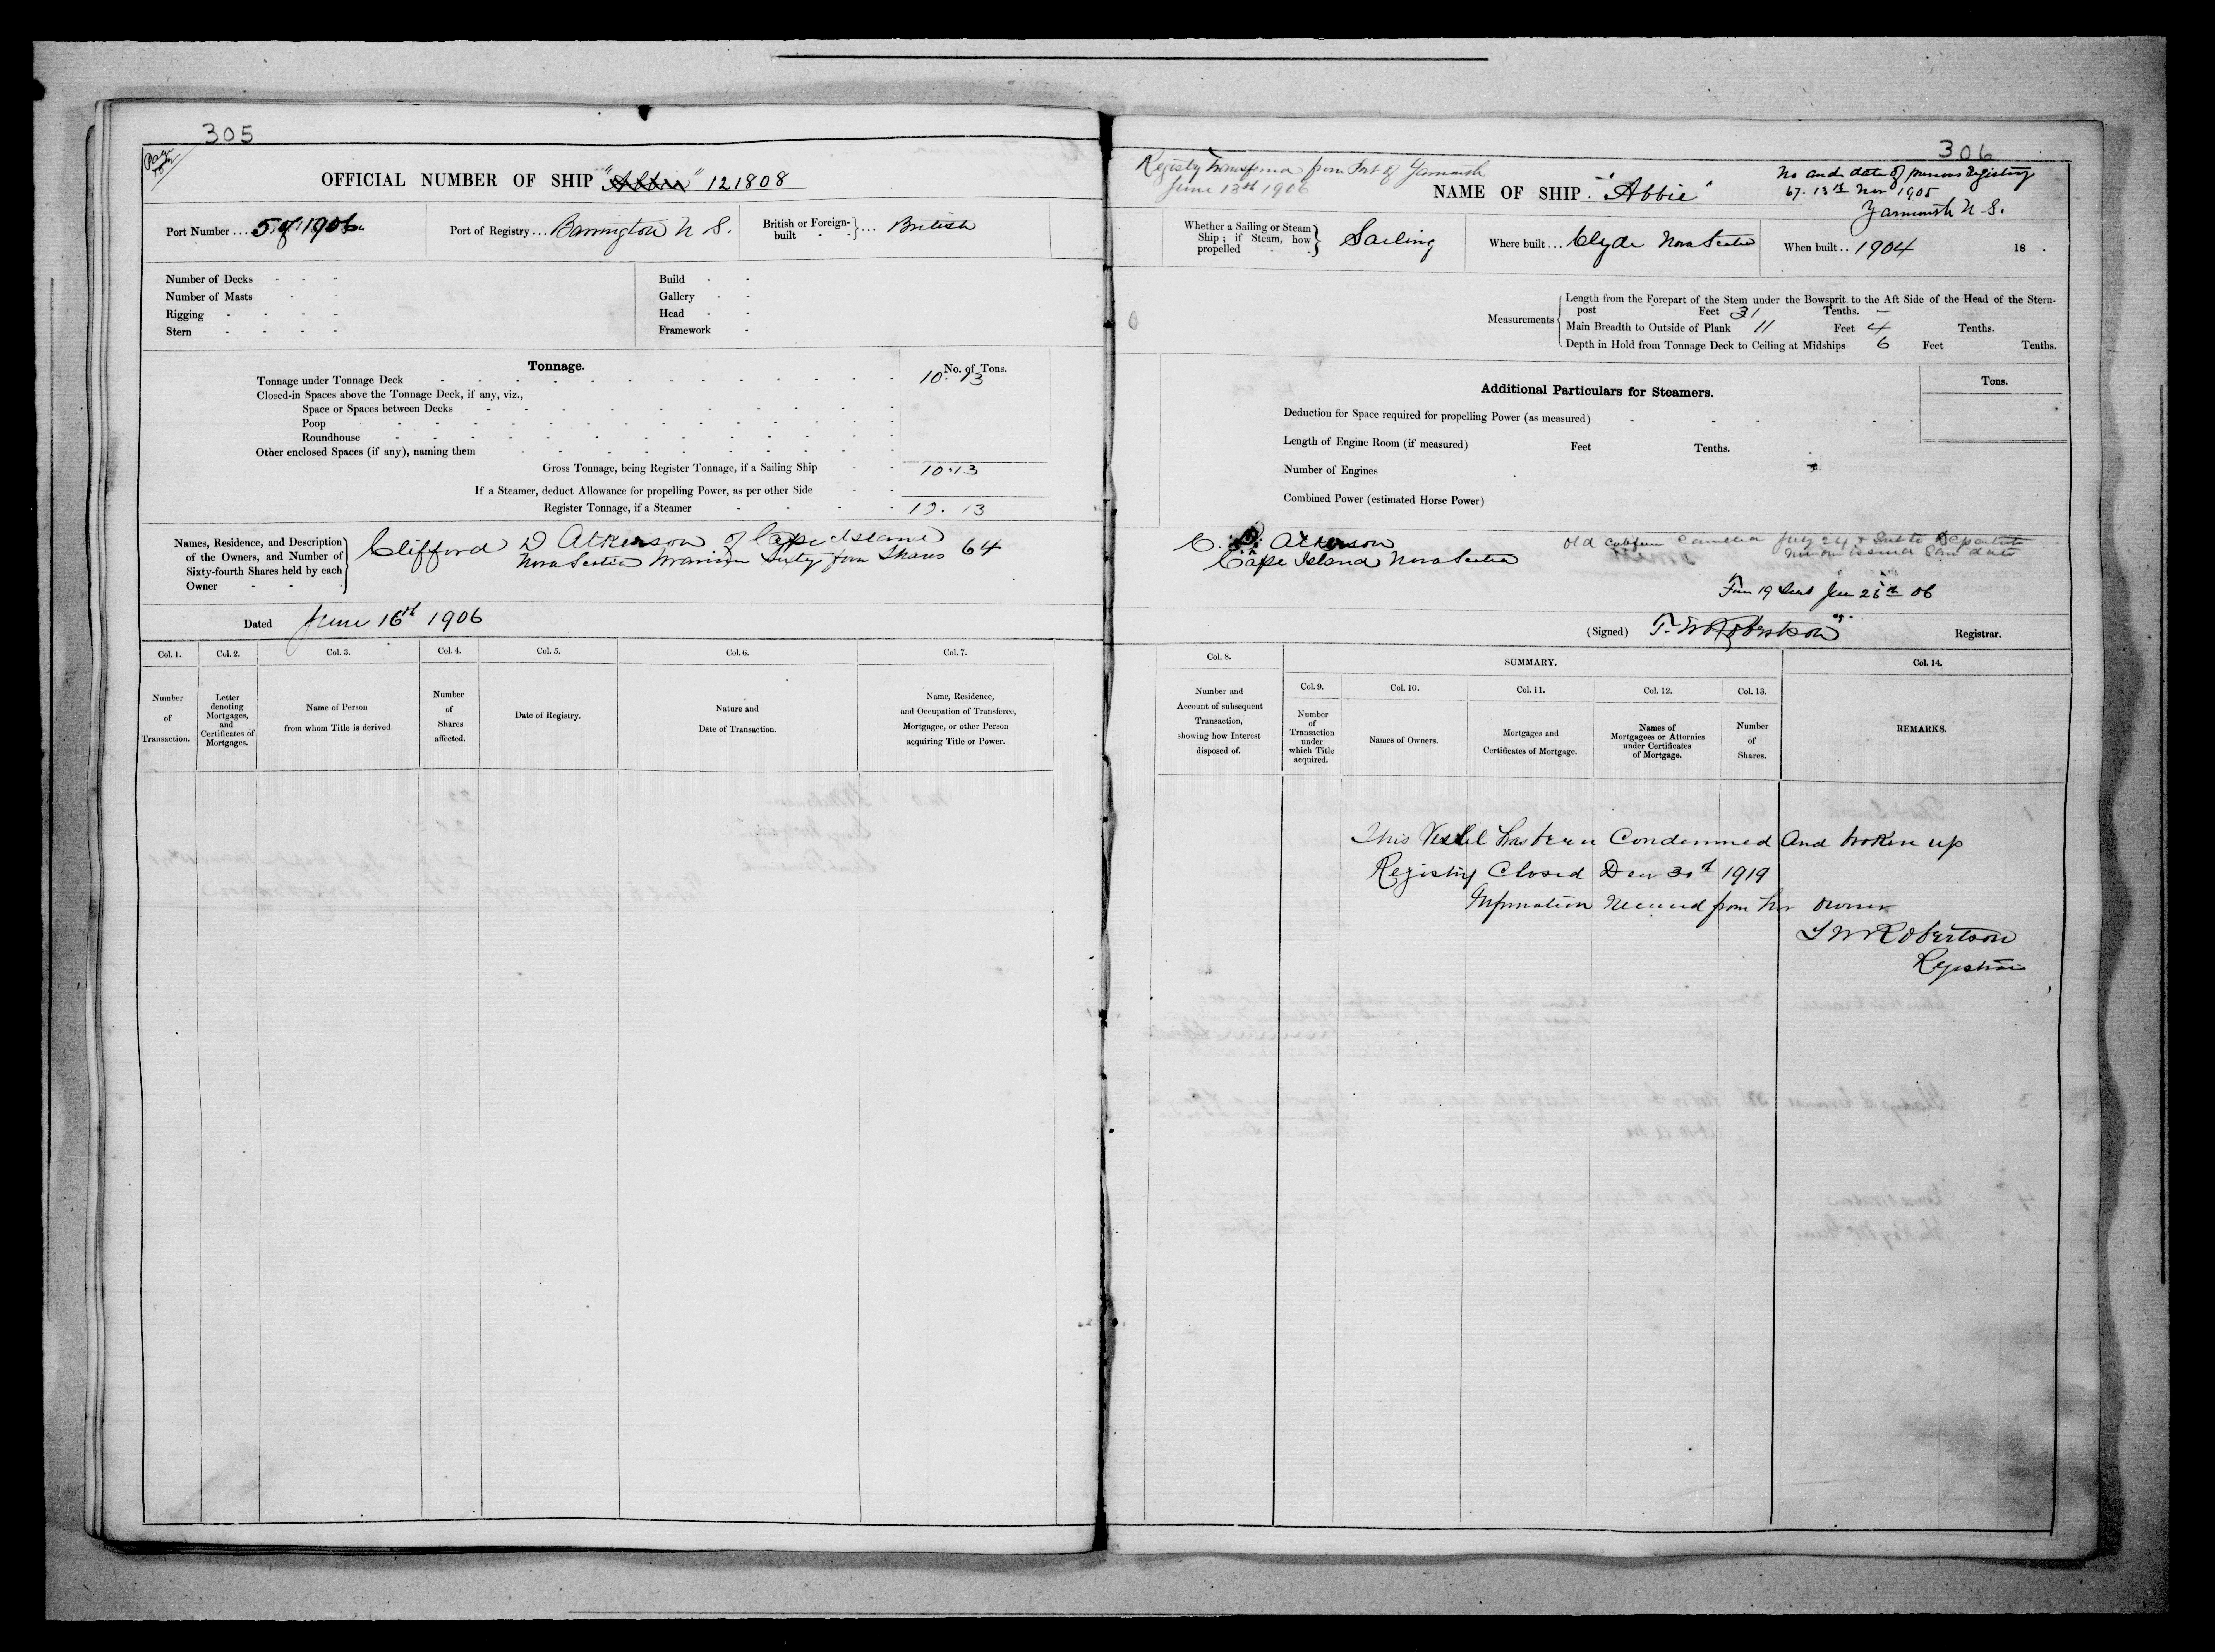 305
Page
OFFICIAL NUMBER OF SHIP "Abbie" 121808
Port Number ... 5 of 1906
Port of Registry ... Barrington N S.
British or Foreign-built } ... British
Number of Decks
Number of Masts
Rigging
Stern
Build
Gallery
Head
Framework
Tonnage.
No. of Tons.
Tonnage under Tonnage Deck 10.13
Closed-in Spaces above the Tonnage Deck, if any, viz.,
Space or Spaces between Decks
Poop
Roundhouse
Other enclosed Spaces (if any), naming them
Gross Tonnage, being Register Tonnage, if a Sailing Ship 10.13
If a Steamer, deduct Allowance for propelling Power, as per other Side
Register Tonnage, if a Steamer 10.13
Names, Residence, and Description
of the Owners, and Number of
Sixty-fourth Shares held by each
Owner
Clifford D Atkinson of Cape Island
Nova Scotia Mariner Sixty four Shares 64
Dated June 16th 1906
Col. 1. Col. 2. Col. 3. Col. 4. Col. 5. Col. 6. Col. 7.
Number of Transaction.
Letter denoting Mortgages, and Certificates of Mortgages.
Name of Person from whom Title is derived.
Number of Shares affected.
Date of Registry.
Nature and Date of Transaction.
Name, Residence, and Occupation of Transferee, Mortgagee, or other Person acquiring Title or Power.
306
Registry Transferred from Port of Yarmouth
June 13th 1906
NAME OF SHIP. "Abbie"
No and date of previous Registry
67. 13th Nov 1905
Yarmouth N S.
Whether a Sailing or Steam Ship; if Steam, how propelled } Sailing
Where built ... Clyde Nova Scotia
When built .. 1904 18 .
Measurements
Length from the Forepart of the Stem under the Bowsprit to the Aft Side of the Head of the Stern-
post Feet 31 Tenths. –
Main Breadth to Outside of Plank 11 Feet 4 Tenths.
Depth in Hold from Tonnage Deck to Ceiling at Midships 6 Feet Tenths.
Additional Particulars for Steamers.
Tons.
Deduction for Space required for propelling Power (as measured)
Length of Engine Room (if measured) Feet Tenths.
Number of Engines
Combined Power (estimated Horse Power)
C. D. Atkinson
Cape Island Nova Scotia
Old July 24 Sent to Department
issued Same date
Form 19 Sent 06
(Signed) T. W Robertson Registrar.
Col. 8. SUMMARY. Col. 14.
Col. 9. Col. 10. Col. 11. Col. 12. Col. 13.
Number and Account of subsequent Transaction, showing how Interest disposed of.
Number of Transaction under which Title acquired.
Names of Owners.
Mortgages and Certificates of Mortgage.
Names of Mortgagees or Attornies under Certificates of Mortgage.
Number of Shares.
REMARKS.
This Vessel has been Condemned And broken up
Registry Closed 1919
Information received from her owner
T W Robertson
Registrar